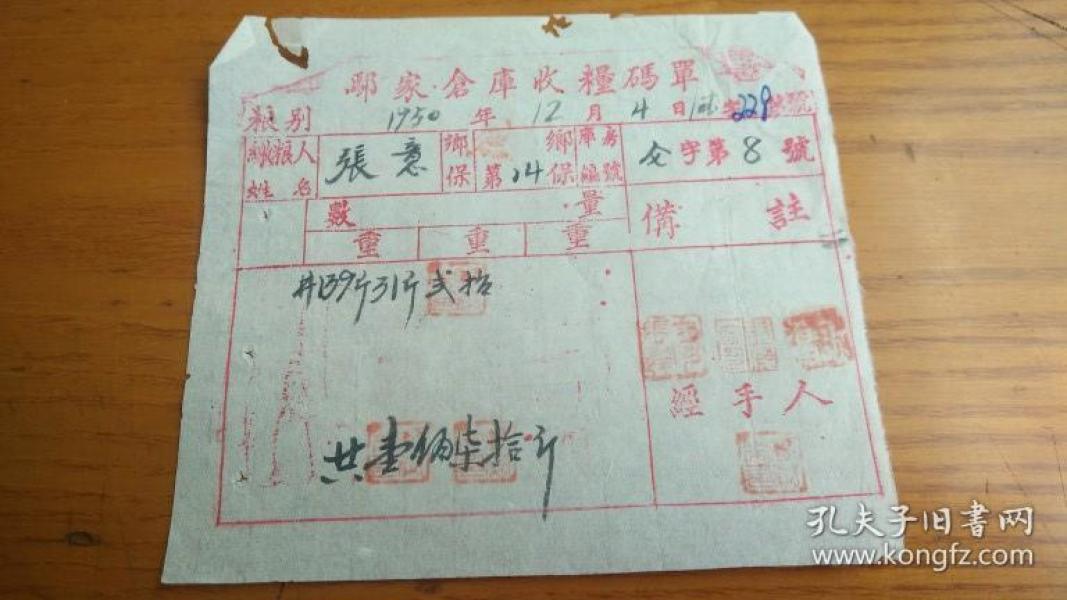 鄢家倉庫收糧碼單
粮别 1950年12月4日 字229號
納粮人姓名 張意 鄉保 鄉第14保 庫房編號 仝字第8號
數量 備註
重 重 重
卄139斤31斤 弍拾
共壹佰柒拾斤
經手人
孔夫子旧书网
www.kongfz.com